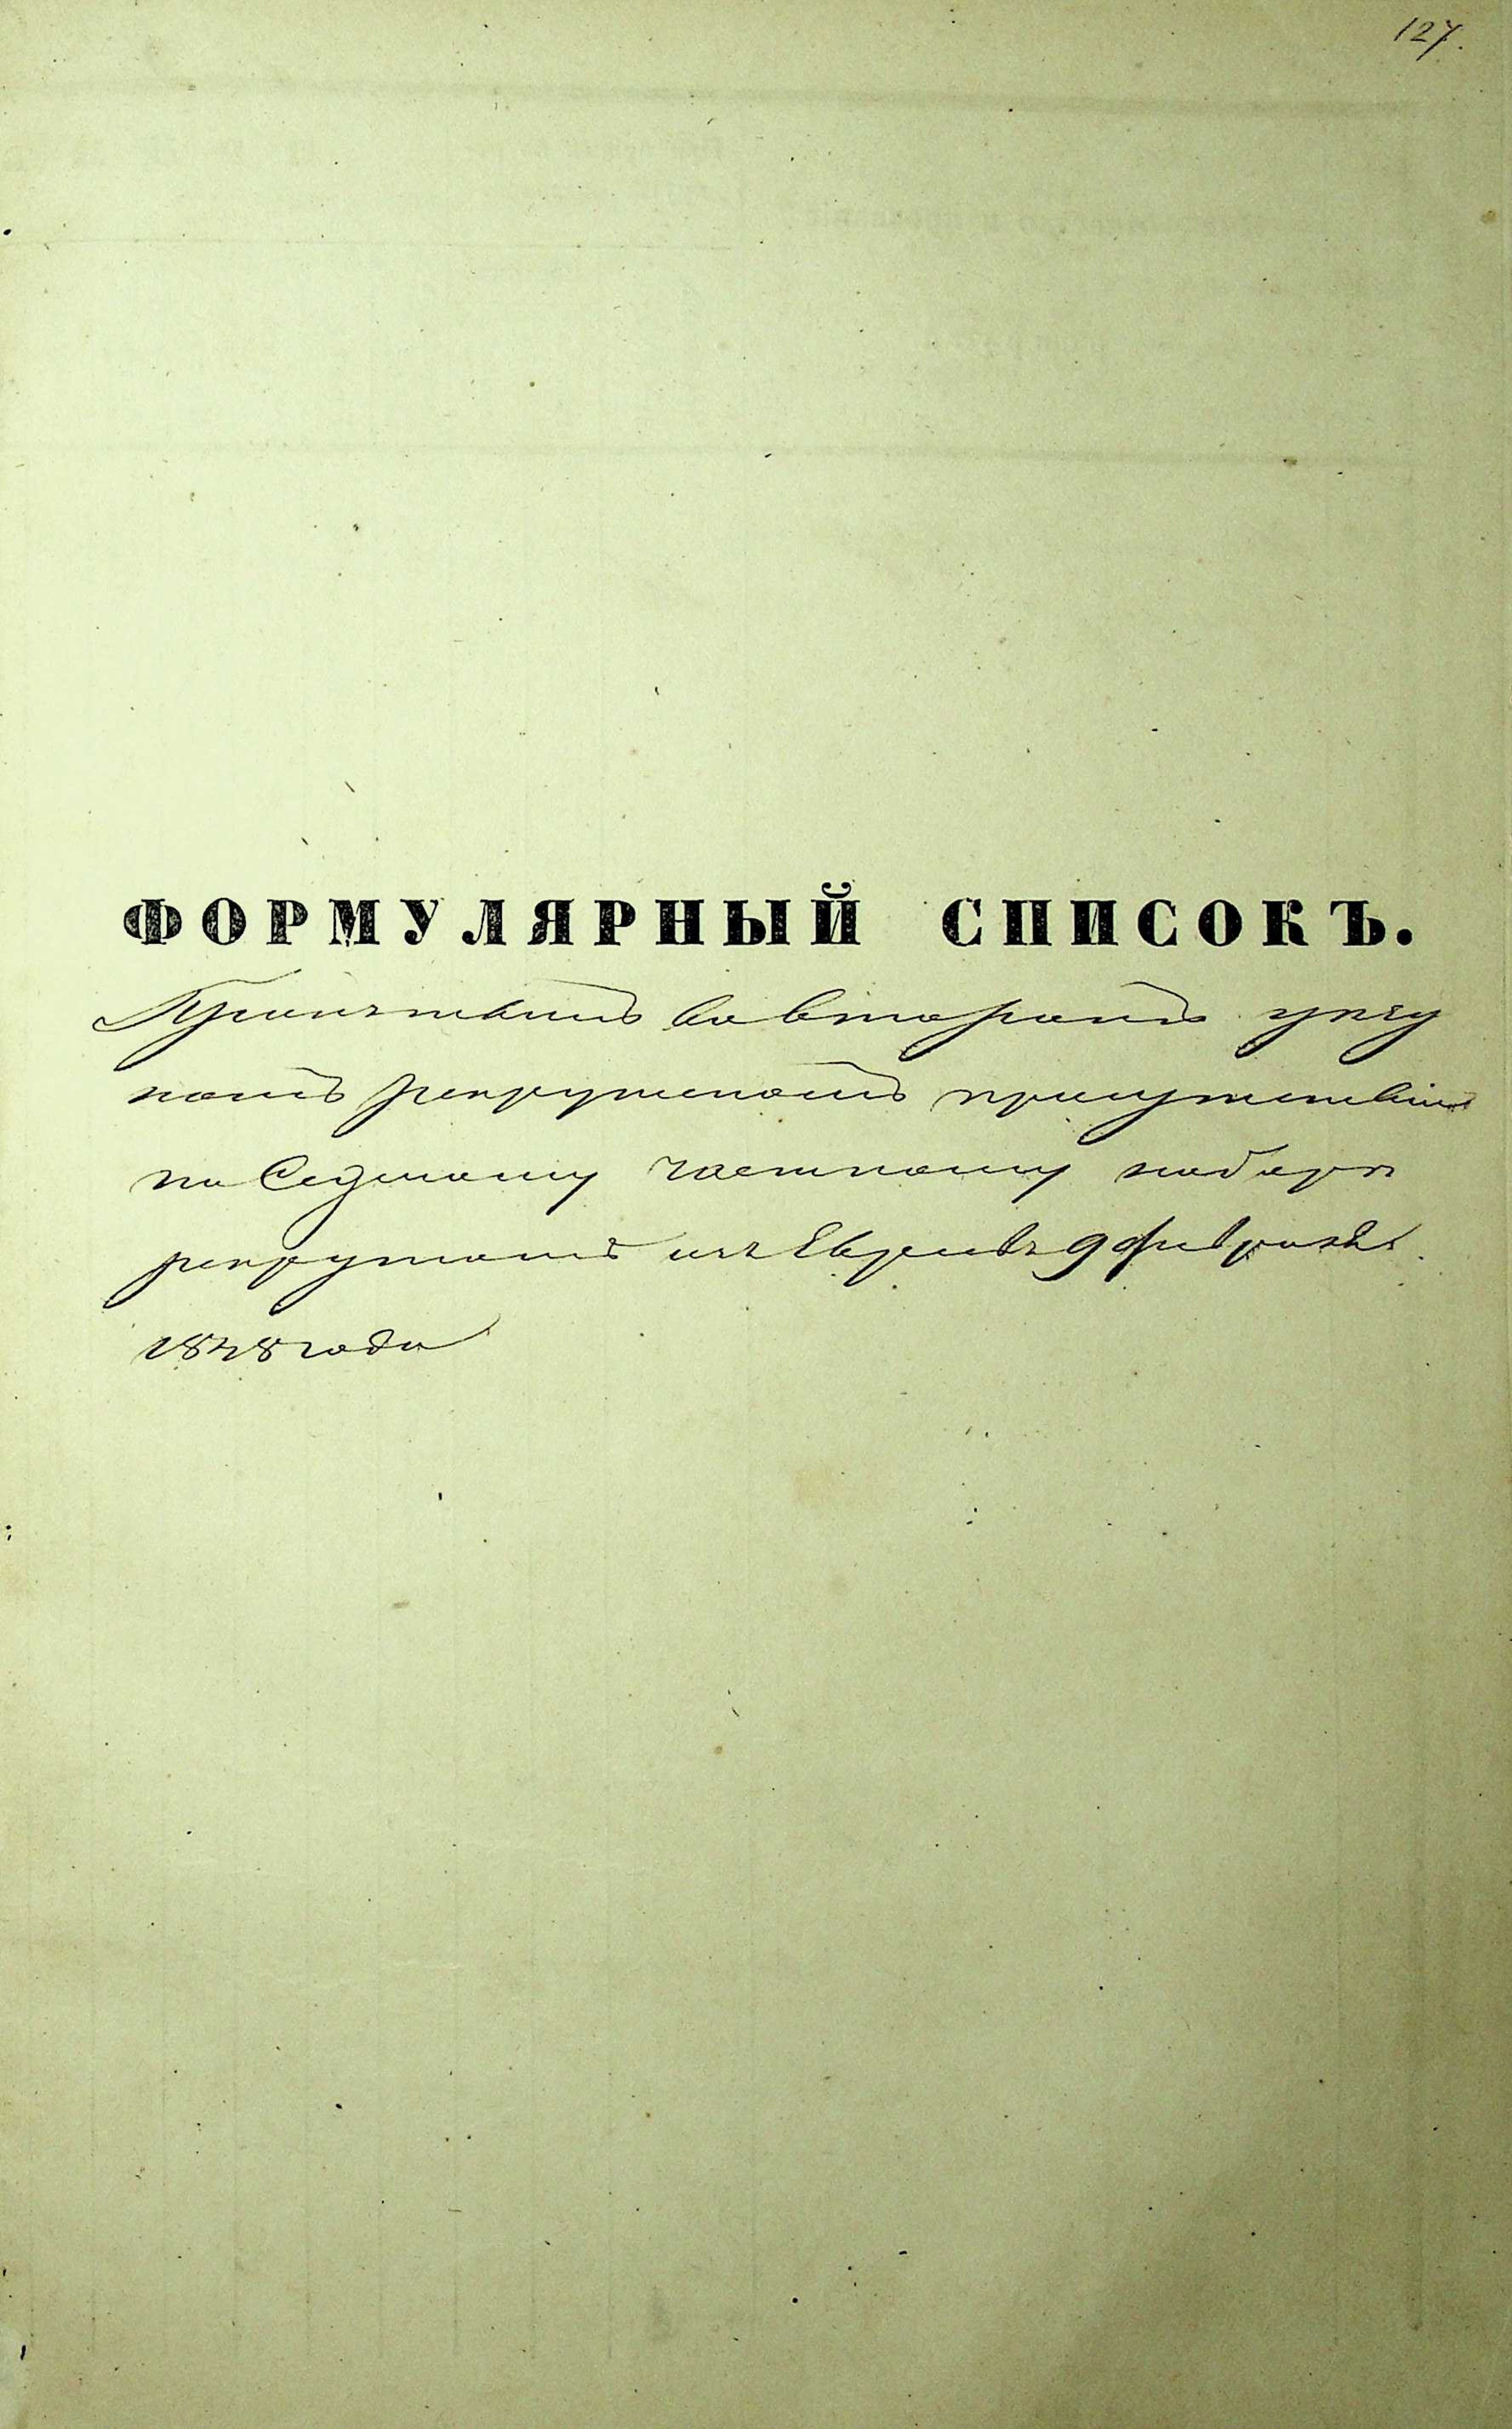 127.
ФОРМУЛЯРНЫЙ СПИСОКЪ.
Принятымъ во второмъ уезд
номъ рекрутскомъ присутствіи
по Седьмому частному набору
рекрутамъ изъ Евреевъ 9 февраля
1848 года